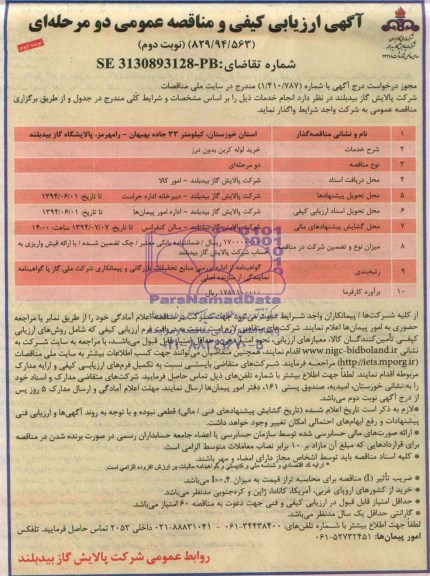 آگهی ارزیابی کیفی و مناقصه عمومی دو مرحله‌ای
(۸۲۹/۹۴/۵۶۳) (نوبت دوم)
نوبت دوم
شماره تقاضای: SE 3130893128-PB
مجوز درخواست درج آگهی با شماره (۱/۴۱۰/۷۸۷) مندرج در سایت ملی مناقصات
شرکت پالایش گاز بیدبلند در نظر دارد انجام خدمات ذیل را بر اساس مشخصات و شرایط کلی مندرج در جدول و از طریق برگزاری
مناقصه عمومی به شرکت واجد شرایط واگذار نماید.
۱ نام و نشانی مناقصه‌گذار استان خوزستان، کیلومتر ۳۳ جاده بهبهان - رامهرمز، پالایشگاه گاز بیدبلند
۲ شرح خدمات خرید لوله کربن بدون درز
۳ نوع مناقصه دو مرحله‌ای
۴ محل دریافت اسناد شرکت پالایش گاز بیدبلند - امور کالا
۵ محل تحویل پیشنهادها شرکت پالایش گاز بیدبلند - دبیرخانه اداره حراست تا تاریخ: ۱۳۹۴/۰۶/۰۱
۶ محل تحویل اسناد ارزیابی کیفی شرکت پالایش گاز بیدبلند - اداره امور پیمان‌ها تا تاریخ: ۱۳۹۴/۰۶/۰۱
۷ محل گشایش پیشنهادهای مالی شرکت پالایش گاز بیدبلند - سالن کنفرانس تا تاریخ: ۱۳۹۴/۰۷/۰۷ ساعت: ۱۴:۰۰
۸ میزان نوع و تضمین شرکت در مناقصه ریال / ضمانتنامه بانکی معتبر / چک تضمین شده / یا ارائه فیش واریزی به
حساب شرکت پالایش گاز بیدبلند
۹ رتبه‌بندی گواهینامه
نمایندگی از سازنده اصلی
۱۰ برآورد کارفرما ریال
ParsNamadData
از کلیه شرکت‌ها / پیمانکاران واجد شرایط دعوت می‌شود جهت شرکت در مناقصه اعلام آمادگی خود را از طریق نمابر یا مراجعه
حضوری به امور پیمان‌ها اعلام نمایند.
نشانی www.nigc-bidboland.ir اقدام نمایند، همچنین متقاضیان می‌توانند جهت کسب اطلاعات بیشتر به سایت ملی مناقصات
(http://iets.mporg.ir) مراجعه فرمایند. شرکت‌های متقاضی بایستی نسبت به تکمیل فرم‌های ارزیابی کیفی و ارایه مدارک
مربوطه اقدام نمایند. لطفاً جهت اطلاع بیشتر با شماره تلفن‌های ذیل تماس حاصل فرمایید. شرکت‌های متقاضی مدارک و اسناد خود
را به نشانی خوزستان، امیدیه، صندوق پستی ۱۶۱، دفتر امور پیمان‌ها ارسال نمایند. مهلت اعلام آمادگی و ارسال مدارک ۵ روز پس
از درج آگهی نوبت دوم می‌باشد.
*لازم به ذکر است تاریخ اعلام شده (تاریخ گشایش پیشنهادهای فنی / مالی) قطعی نبوده و با توجه به روند آگهی‌ها و ارزیابی فنی
پیشنهادات و رفع ابهام‌های احتمالی امکان تغییر وجود خواهد داشت.
* ارائه صورت‌های مالی حسابرسی شده توسط سازمان حسابرسی یا اعضاء جامعه حسابداران رسمی در صورت برنده شدن در مناقصه
برای قراردادهایی که مبلغ آن مازاد بر ۱۰ برابر نصاب معاملات متوسط الزامی است.
* کلیه اسناد مناقصه باید توسط اشخاص مجاز دارای امضاء و مهر باشند.
* ارایه کد اقتصادی و شناسه ملی و کدپستی و گواهینامه مالیات بر ارزش افزوده الزامی است.
* ضریب تأثیر (I) مناقصه برای محاسبه تراز قیمت به میزان ۰.۴ = I می‌باشد.
* خرید از کشورهای اروپای غربی، آمریکا، کانادا، ژاپن و کره‌جنوبی مدنظر می‌باشد.
* حداقل امتیاز قابل قبول در ارزیابی کیفی و فنی جهت دعوت به مناقصه ۶۰ امتیاز می‌باشد.
* گارانتی حداقل یک سال مدنظر می‌باشد.
لطفاً جهت اطلاع بیشتر با شماره تلفن‌های: ۳۴۴۳۸۴۰۰-۰۶۱ ۸۸۸۳۱۰۴۱-۰۲۱ داخلی ۲۰۵۲ تماس حاصل فرمایید. تلفکس
امور پیمان‌ها: ۵۲۷۳۲۴۵۱-۰۶۱
روابط عمومی شرکت پالایش گاز بیدبلند